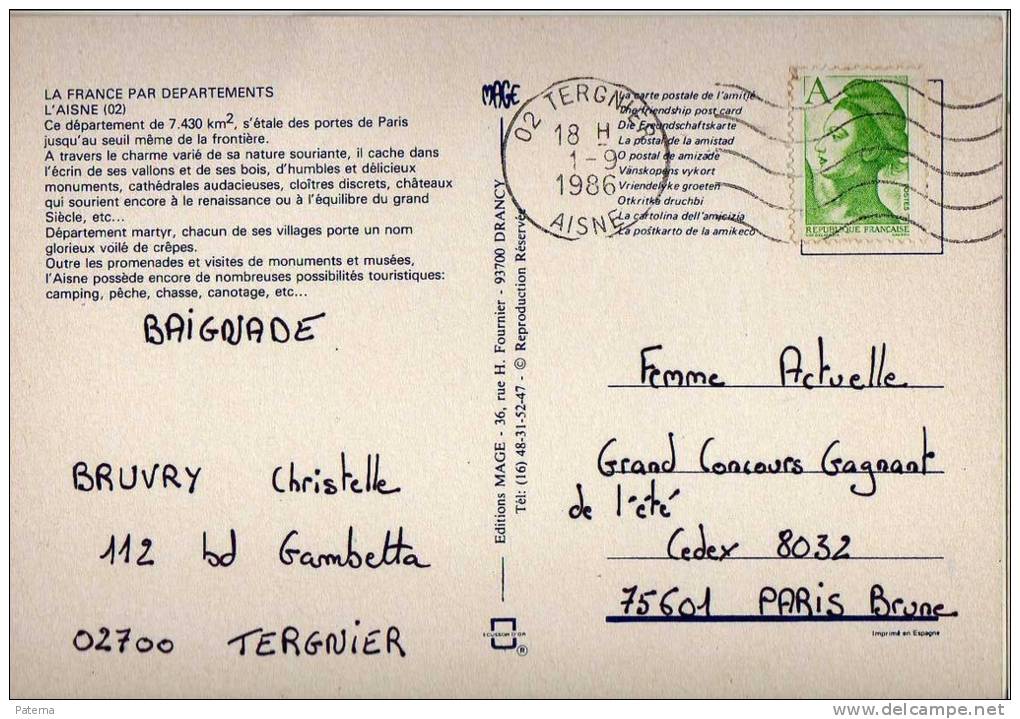 LA FRANCE PAR DEPARTEMENTS
L'AISNE (02)
Ce département de 7.430 km2, s'étale des portes de Paris
jusqu'au seuil même de la frontière.
A travers le charme varié de sa nature souriante, il cache dans
l'écrin de ses vallons et de ses bois, d'humbles et délicieux
monuments, cathédrales audacieuses, cloîtres discrets, châteaux
qui sourient encore à le renaissance ou à l'équilibre du grand
Siècle, etc...
Département martyr, chacun de ses villages porte un nom
glorieux voilé de crêpes.
Outre les promenades et visites de monuments et musées,
l'Aisne possède encore de nombreuses possibilités touristiques:
camping, pêche, chasse, canotage, etc...
BAIGNADE
BRUVRY Christelle
112 bd Gambetta
02700 TERGNIER
MAGE
Editions MAGE - 36, rue H. Fournier - 93700 DRANCY
Tél: (16) 48-31-52-47 - © Reproduction Réservée
ECUSSON D'OR
®
02 TERGNIER
18 H
1-9
1986
AISNE
La carte postale de l'amitié
The friendship post card
Die Freundschaftskarte
La postal de la amistad
O postal de amizade
Vänskopens vykort
Vriendelyke groeten
Otkritka druchbi
La cartolina dell'amicizia
La poŝtkarto de la amikeco
A
POSTES
REPUBLIQUE FRANCAISE
Femme Actuelle
Grand Concours Gagnant
de l'été
Cedex 8032
75601 PARIS Brune
Imprimé en Espagne
Paterna
www.delcampe.net